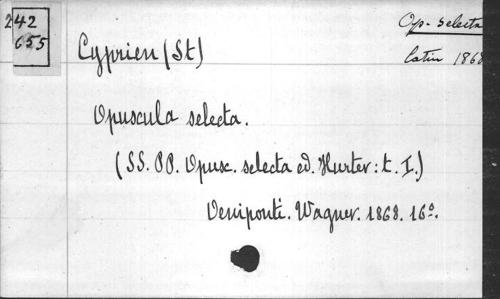 242
655
Op. selecta
latin 1868
Cyprien (St)
Opuscula selecta.
(SS. PP. Opusc. selecta ed. Hurter: t. I.)
Oeniponti. Wagner. 1868. 16º.